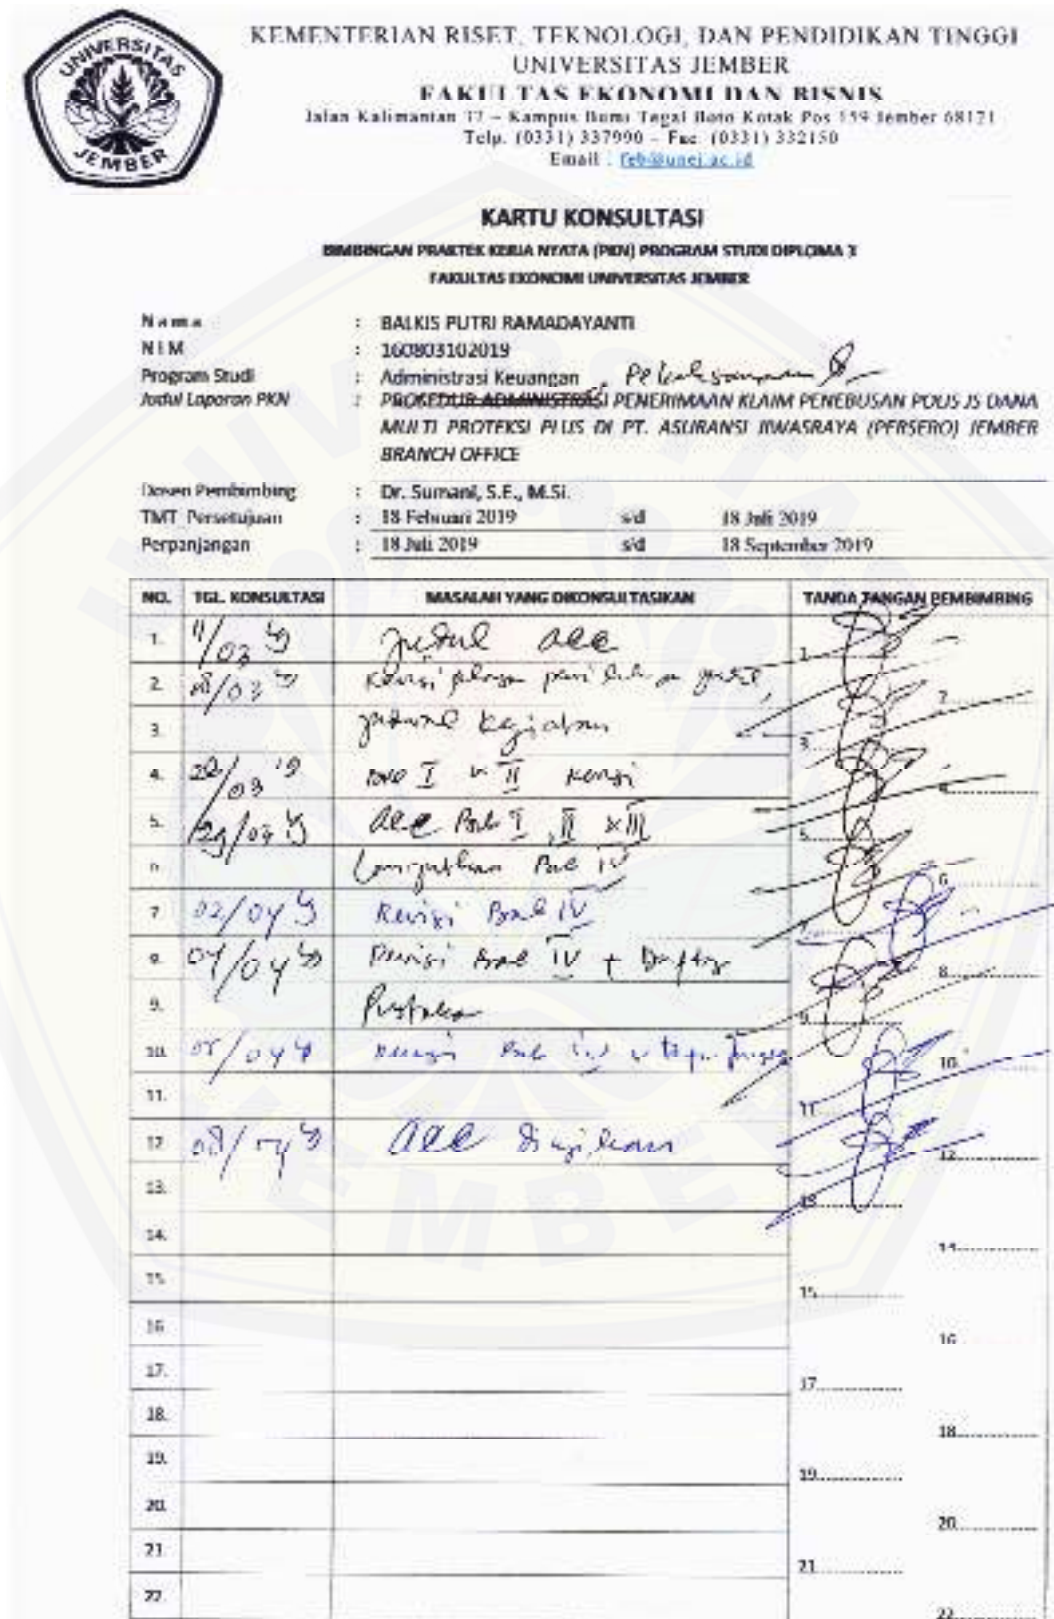 UNIVERSITAS
JEMBER
KEMENTERIAN RISET, TEKNOLOGI, DAN PENDIDIKAN TINGGI
UNIVERSITAS JEMBER
FAKULTAS EKONOMI DAN BISNIS
Jalan Kalimantan 37 – Kampus Bumi Tegal Boto Kotak Pos 159 Jember 68121
Telp. (0331) 337990 – Fac. (0331) 332150
Email : feb@unej.ac.id
KARTU KONSULTASI
BIMBINGAN PRAKTEK KERJA NYATA (PKN) PROGRAM STUDI DIPLOMA 3
FAKULTAS EKONOMI UNIVERSITAS JEMBER
Nama : BALKIS PUTRI RAMADAYANTI
NIM : 160803102019
Program Studi : Administrasi Keuangan
Judul Laporan PKN : PROSEDUR ADMINISTRASI PENERIMAAN KLAIM PENEBUSAN POLIS JS DANA
MULTI PROTEKSI PLUS DI PT. ASURANSI JIWASRAYA (PERSERO) JEMBER
BRANCH OFFICE
Dosen Pembimbing : Dr. Sumani, S.E., M.Si.
TMT Persetujuan : 18 Februari 2019 s/d 18 Juli 2019
Perpanjangan : 18 Juli 2019 s/d 18 September 2019
NO. TGL. KONSULTASI MASALAH YANG DIKONSULTASIKAN TANDA TANGAN PEMBIMBING
1. 11/03 19 Judul acc 1
2. /03 19 Revisi 2
3. kegiatan 3
4. /03 '19 I II Revisi 4
5. 29/03 19 acc Bab I, II & III 5
6. Lanjutkan Bab IV 6
7 02/04 19 Revisi Bab IV 7
8. 04/04 19 Revisi Bab IV + Daftar 8
9. Pustaka 9
10. 05/04 19 Revisi Bab 10
11. 11
12 08/04 19 acc diujikan 12
13. 13
14. 14
15. 15
16 16
17. 17
18. 18
19. 19
20. 20
21. 21
22. 22